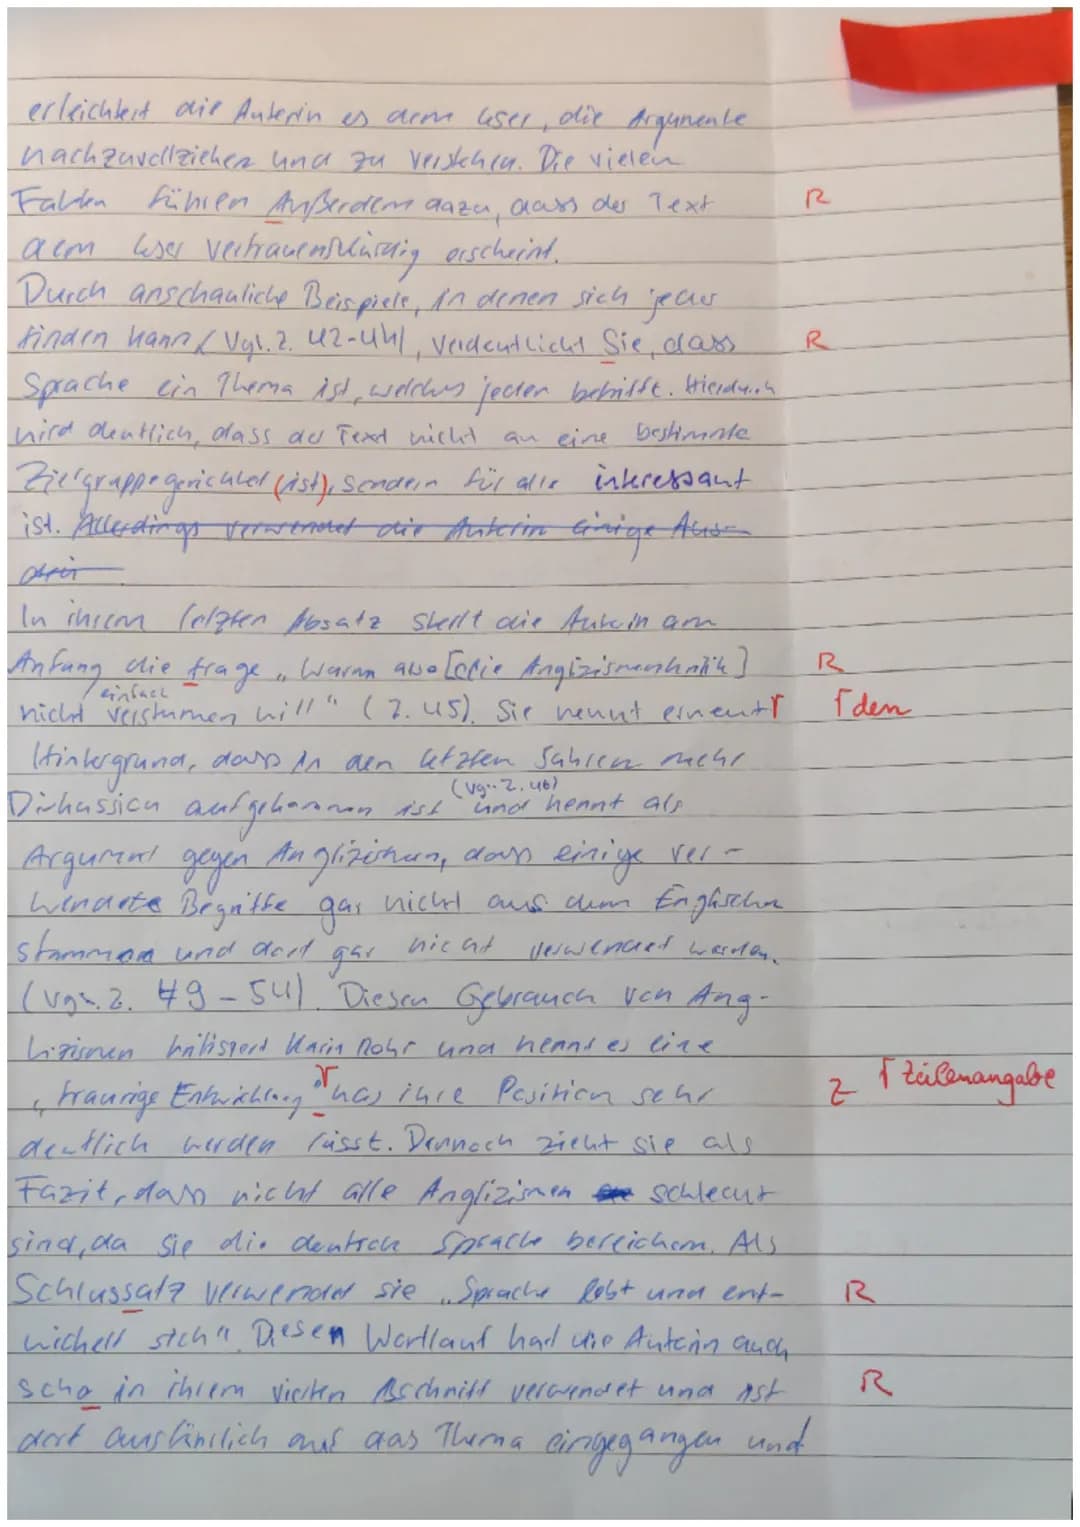 erleichtert die Autorin es dem Leser, die Argumente
nachzuvollziehen und zu verstehen. Die vielen
Fakten führen Außerdem dazu, dass der Text R
dem Leser vertrauenswürdig erscheint.
Durch anschauliche Beispiele, in denen sich jeder
finden kann (Vgl. Z. 42-44), verdeutlicht Sie, dass R
Sprache ein Thema ist, welches jeden betrifft. Hierdurch
wird deutlich, dass der Text nicht an eine bestimmte
Zielgruppe gerichtet (ist), sondern für alle interessant
ist. Allerdings verwendet die Autorin einige Aus-
In ihrem letzten Absatz stellt die Autorin am
Anfang die frage „Warum also [die Anglizismenkritik] R
einfach
nicht verstummen will" (Z. 45). Sie nennt erneut Γ Γ den
Hintergrund, dass in den letzten Jahren mehr
(vgl. Z. 46)
Diskussion aufgekommen ist und nennt als
Argument gegen Anglizismen, dass einige ver-
wendete Begriffe gar nicht aus dem Englischen
stammen und dort gar nicht verwendet werden.
(vgl. Z. 49-54). Diesen Gebrauch von Ang-
lizismen kritisiert Karin und nennt es eine
„traurige Entwicklung" Γ was ihre Position sehr Z Γ Zeilenangabe
deutlich werden lässt. Dennoch zieht sie als
Fazit, dass nicht alle Anglizismen schlecht
sind, da sie die deutsche Sprache bereichern. Als
Schlussatz verwendet sie „Sprache lebt und ent- R
wickelt sich". Diesen Wortlaut hat die Autorin auch
scho in ihrem vierten Abschnitt verwendet und ist R
dort ausführlich auf das Thema eingegangen und